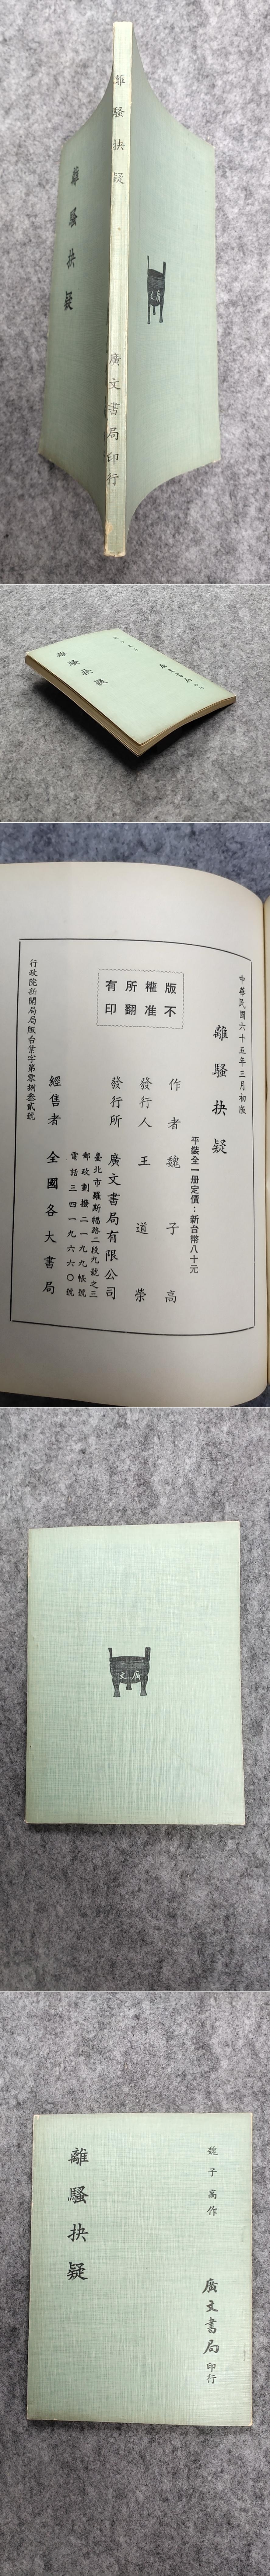 離騷抉疑
廣文書局印行
離騷抉疑
廣文
離騷抉疑
中華民國六十五年三月初版
離騷抉疑
平裝全一册定價：新台幣八十元
作者魏子高
發行人王道榮
發行所廣文書局有限公司
臺北市羅斯福路二段九號之三
郵政劃撥二一九九帳號
電話三四一九六六〇號
經售者全國各大書局
行政院新聞局局版台業字第零捌叁貳號
版權所有
不准翻印
廣文
魏子高作
廣文書局印行
離騷抉疑